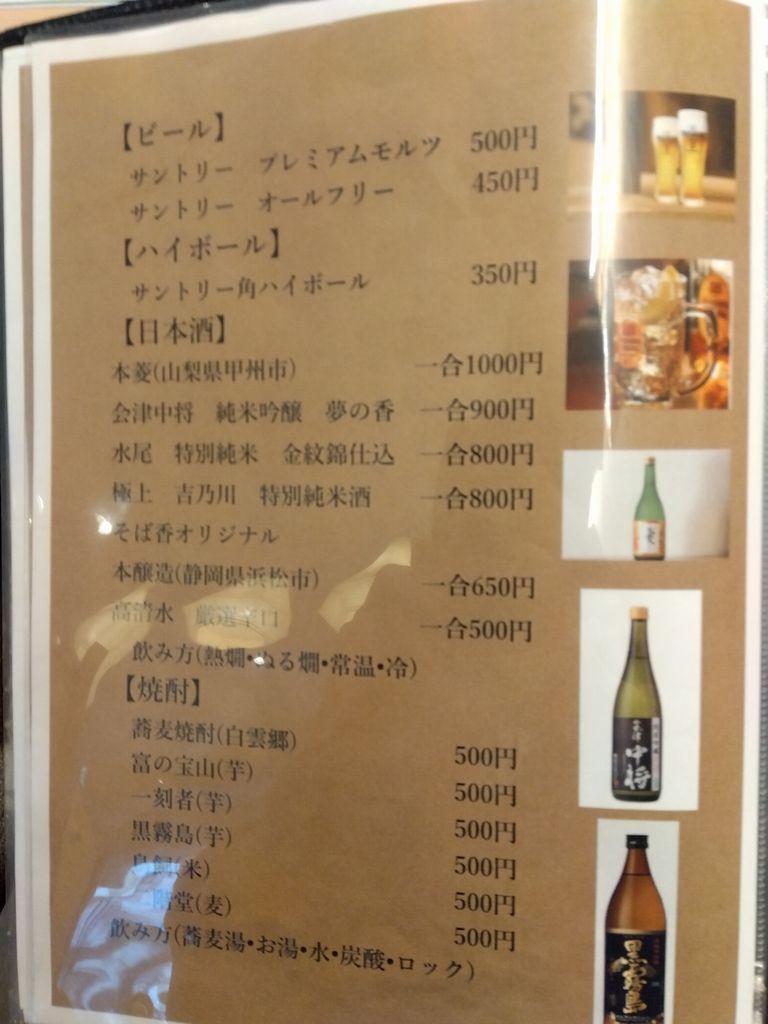 【ビール】
サントリー　プレミアムモルツ　500円
サントリー　オールフリー　450円
【ハイボール】
サントリー角ハイボール　350円
【日本酒】
本菱(山梨県甲州市)　一合1000円
会津中将　純米吟醸　夢の香　一合900円
水尾　特別純米　金紋錦仕込　一合800円
極上　吉乃川　特別純米酒　一合800円
そば香オリジナル
本醸造(静岡県浜松市)　一合650円
高清水　厳選辛口　一合500円
飲み方(熱燗・ぬる燗・常温・冷)
【焼酎】
蕎麦焼酎(白雲郷)　500円
富の宝山(芋)　500円
一刻者(芋)　500円
黒霧島(芋)　500円
鳥飼(米)　500円
二階堂(麦)　500円
飲み方(蕎麦湯・お湯・水・炭酸・ロック)
中将
黒霧島